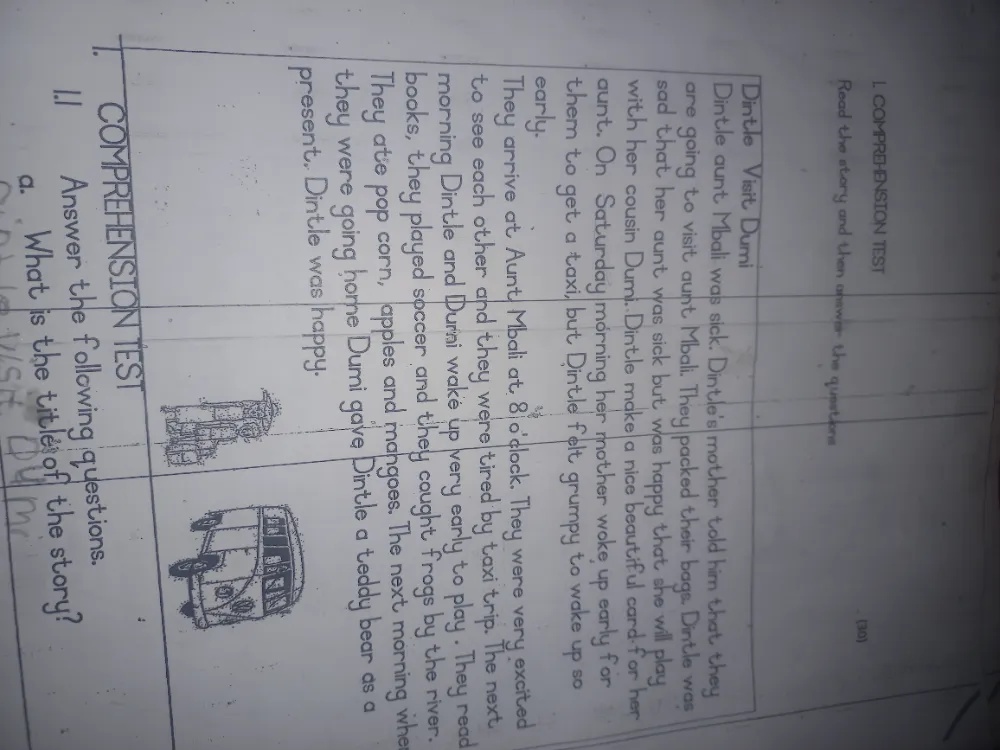 1. COMPREHENSION TEST
Read the story and then answer the questions (30)
Dintle Visit Dumi
Dintle aunt Mbali was sick. Dintle's mother told him that they
are going to visit aunt Mbali. They packed their bags. Dintle was
sad that her aunt was sick but was happy that she will play
with her cousin Dumi. Dintle make a nice beautiful card for her
aunt. On Saturday morning her mother woke up early for
them to get a taxi, but Dintle felt grumpy to wake up so
early.
They arrive at Aunt Mbali at 8 o'clock. They were very excited
to see each other and they were tired by taxi trip. The next
morning Dintle and Dumi wake up very early to play. They read
books, they played soccer and they cought frogs by the river.
They ate pop corn, apples and mangoes. The next morning when
they were going home Dumi gave Dintle a teddy bear as a
present. Dintle was happy.
1. COMPREHENSION TEST
1.1 Answer the following questions.
a. What is the title of the story?
Dintle Visit Dumi